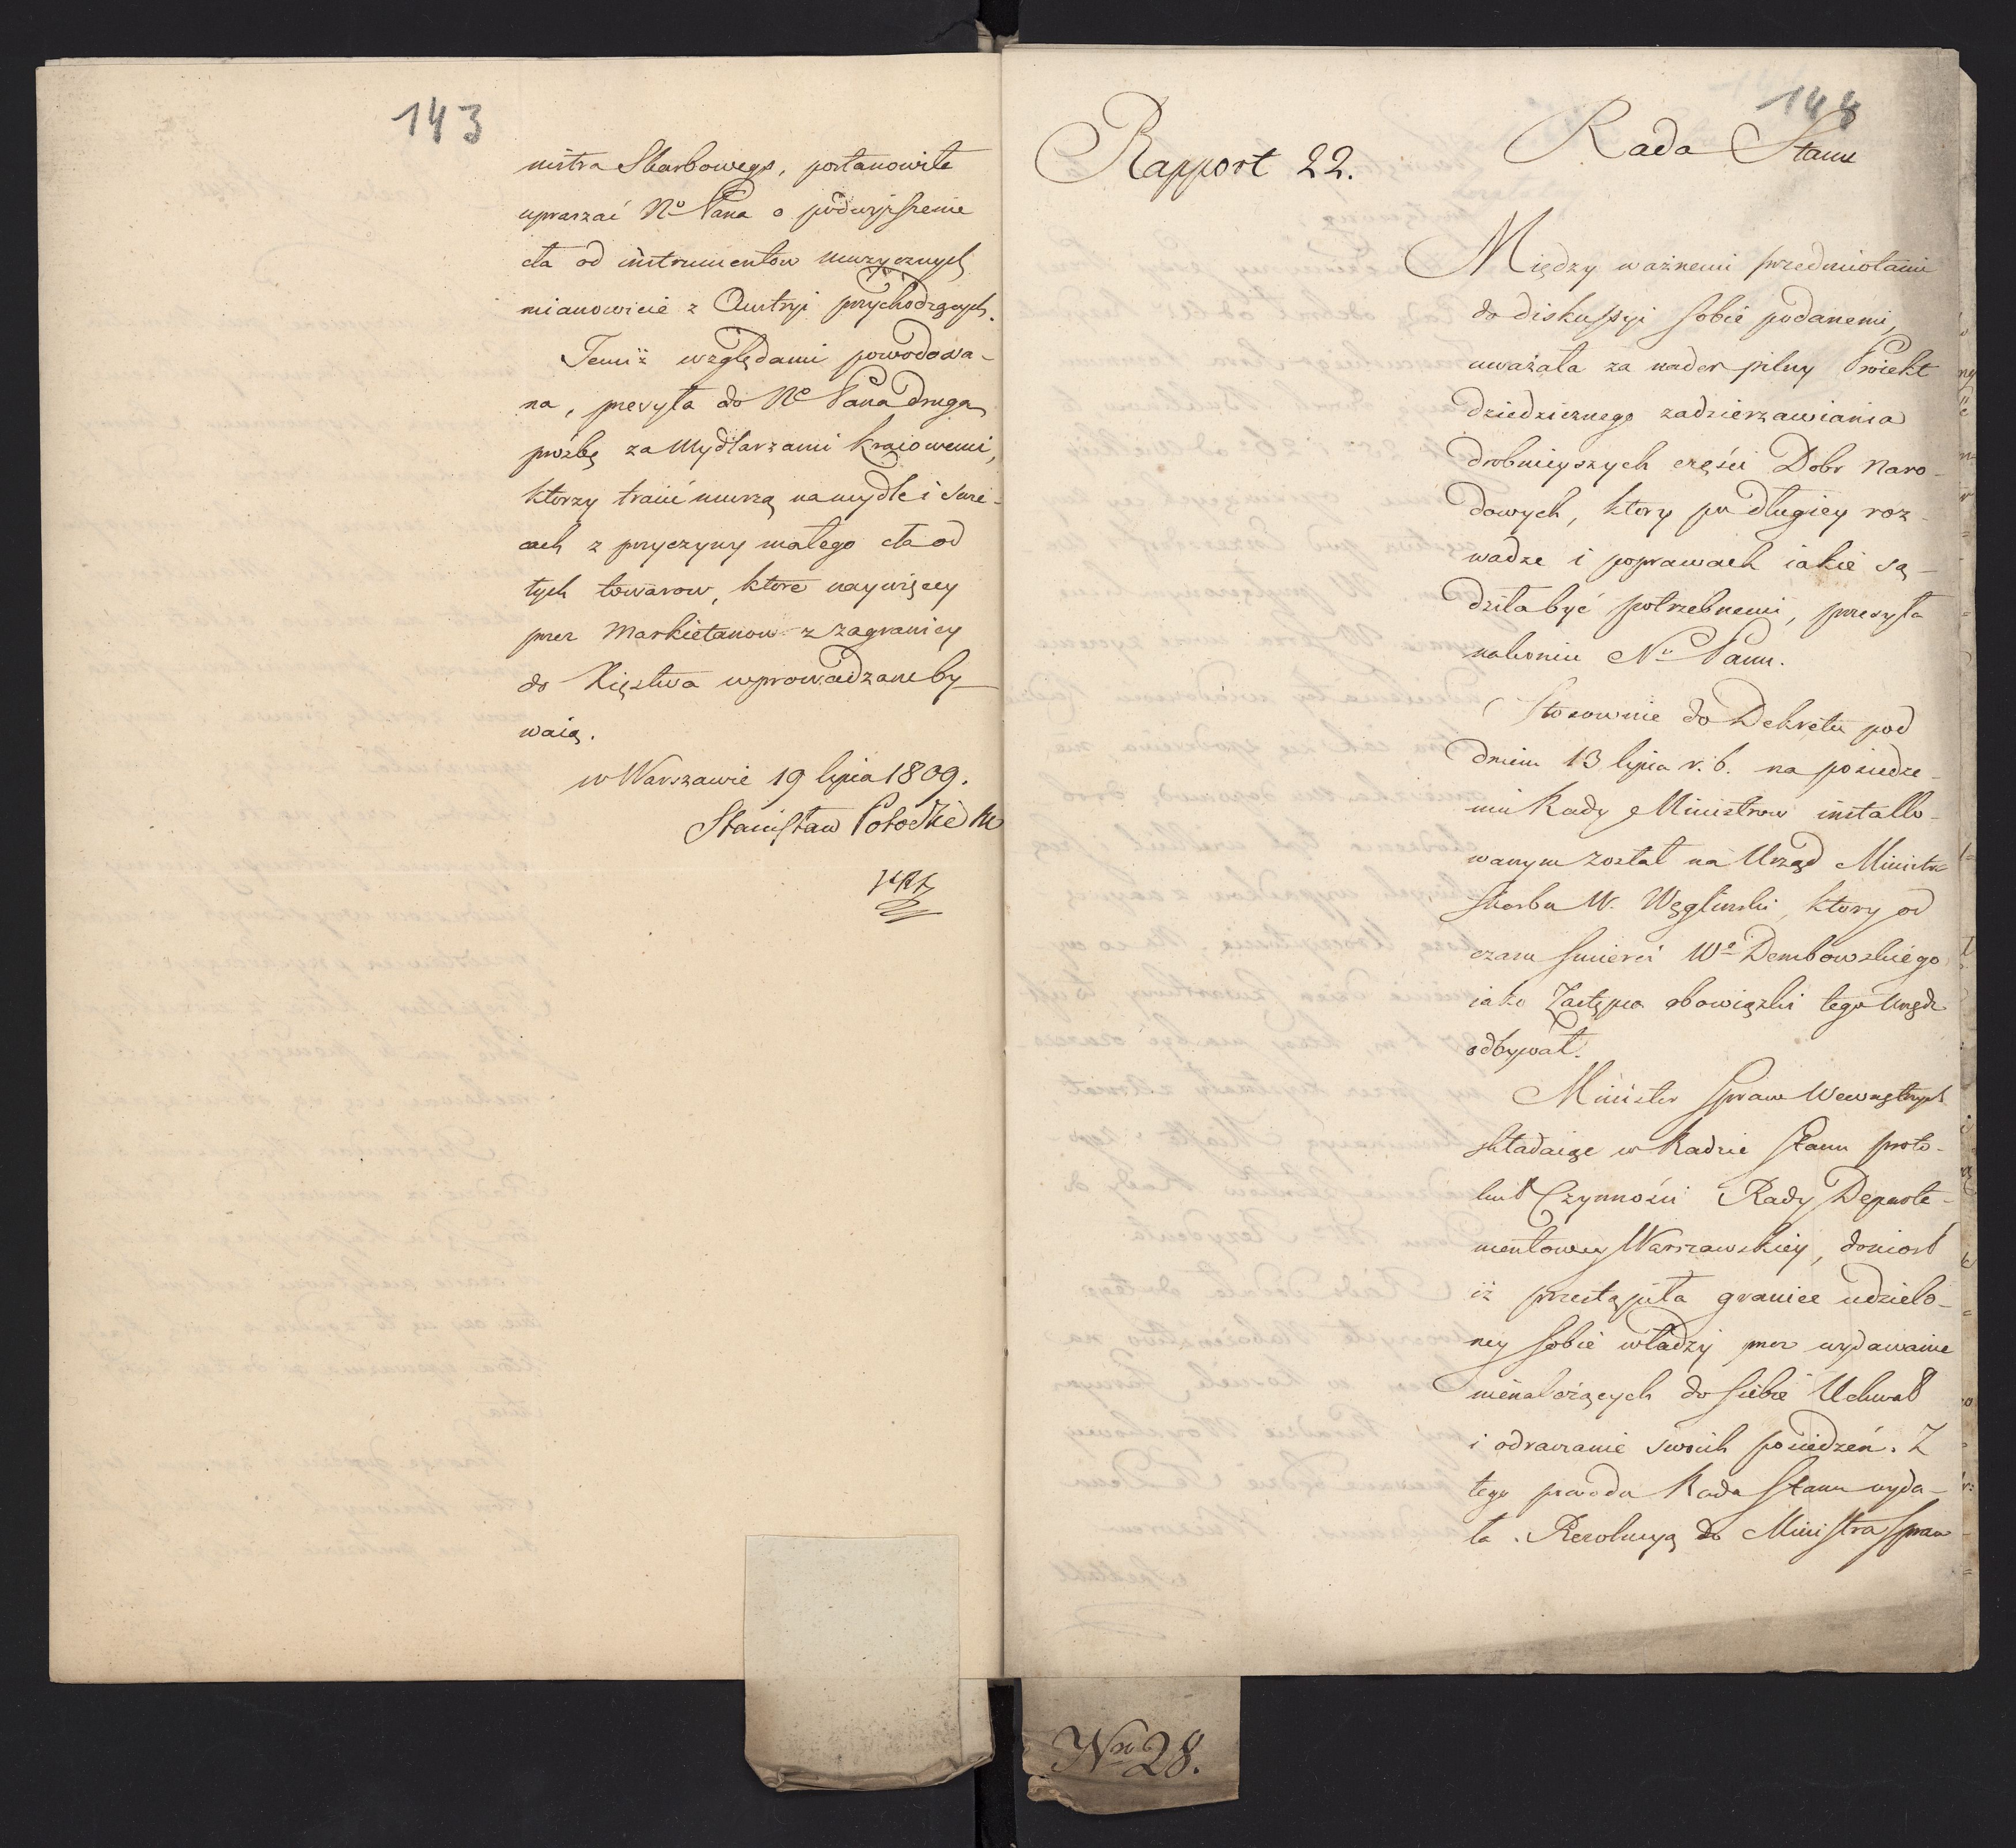 143
nistra Skarbowego, postanowiła
upraszać Nº Pana o podwyższenie
cła od instrumentow muzycznych
mianowicie z Austryi przychodzących.
Temiż względami powodowa-
na, przesyła do Nº Pana drugą
prożbę za Mydlarzami kraiowemi,
ktorzy tracić muszą na mydle i swie-
cach z przyczyny małego cła od
tych towarow, ktore naywięcey
przez Markietanow z zagranicy
do Xięstwa wprowadzane by-
waią.
w Warszawie 19 lipca 1809.
Stanisław Potocki
144
Rapport 22.
Rada Stanu
Między ważnemi przedmiotami
do diskussyi sobie podanemi,
uważała za nader pilny Proiekt
dziedzicznego zadzierzawiania
drobnieyszych części Dobr Naro-
dowych, ktory po długiey roz-
wadze i poprawach iakie są-
dziła być potrzebnemi, przesyła
nakoniec Nu Panu.
Stosownie do Dekretu pod
dniem 13 lipca r. b. na posiedze-
niu Rady Ministrow installo-
wanym został na Urząd Ministra
Skarbu W. Węgliński, ktory od
czasu smierci Wº Dembowskiego
iako Zastępca obowiązki tego Urzędu
odbywał.
Minister Spraw Wewnętrznych
składaiąc w Radzie Stanu proto-
kuł Czynności Rady Departa-
mentowey Warszawskiey, doniosł
iż przestąpiła granice udzielo-
ney sobie władzy przez wydawanie
nienależących do siebie Uchwał
i odraczanie swoich posiedzeń. Z
tego powodu Rada Stanu wyda-
ła Rezolucyą do Ministra Spraw
Nro 28.